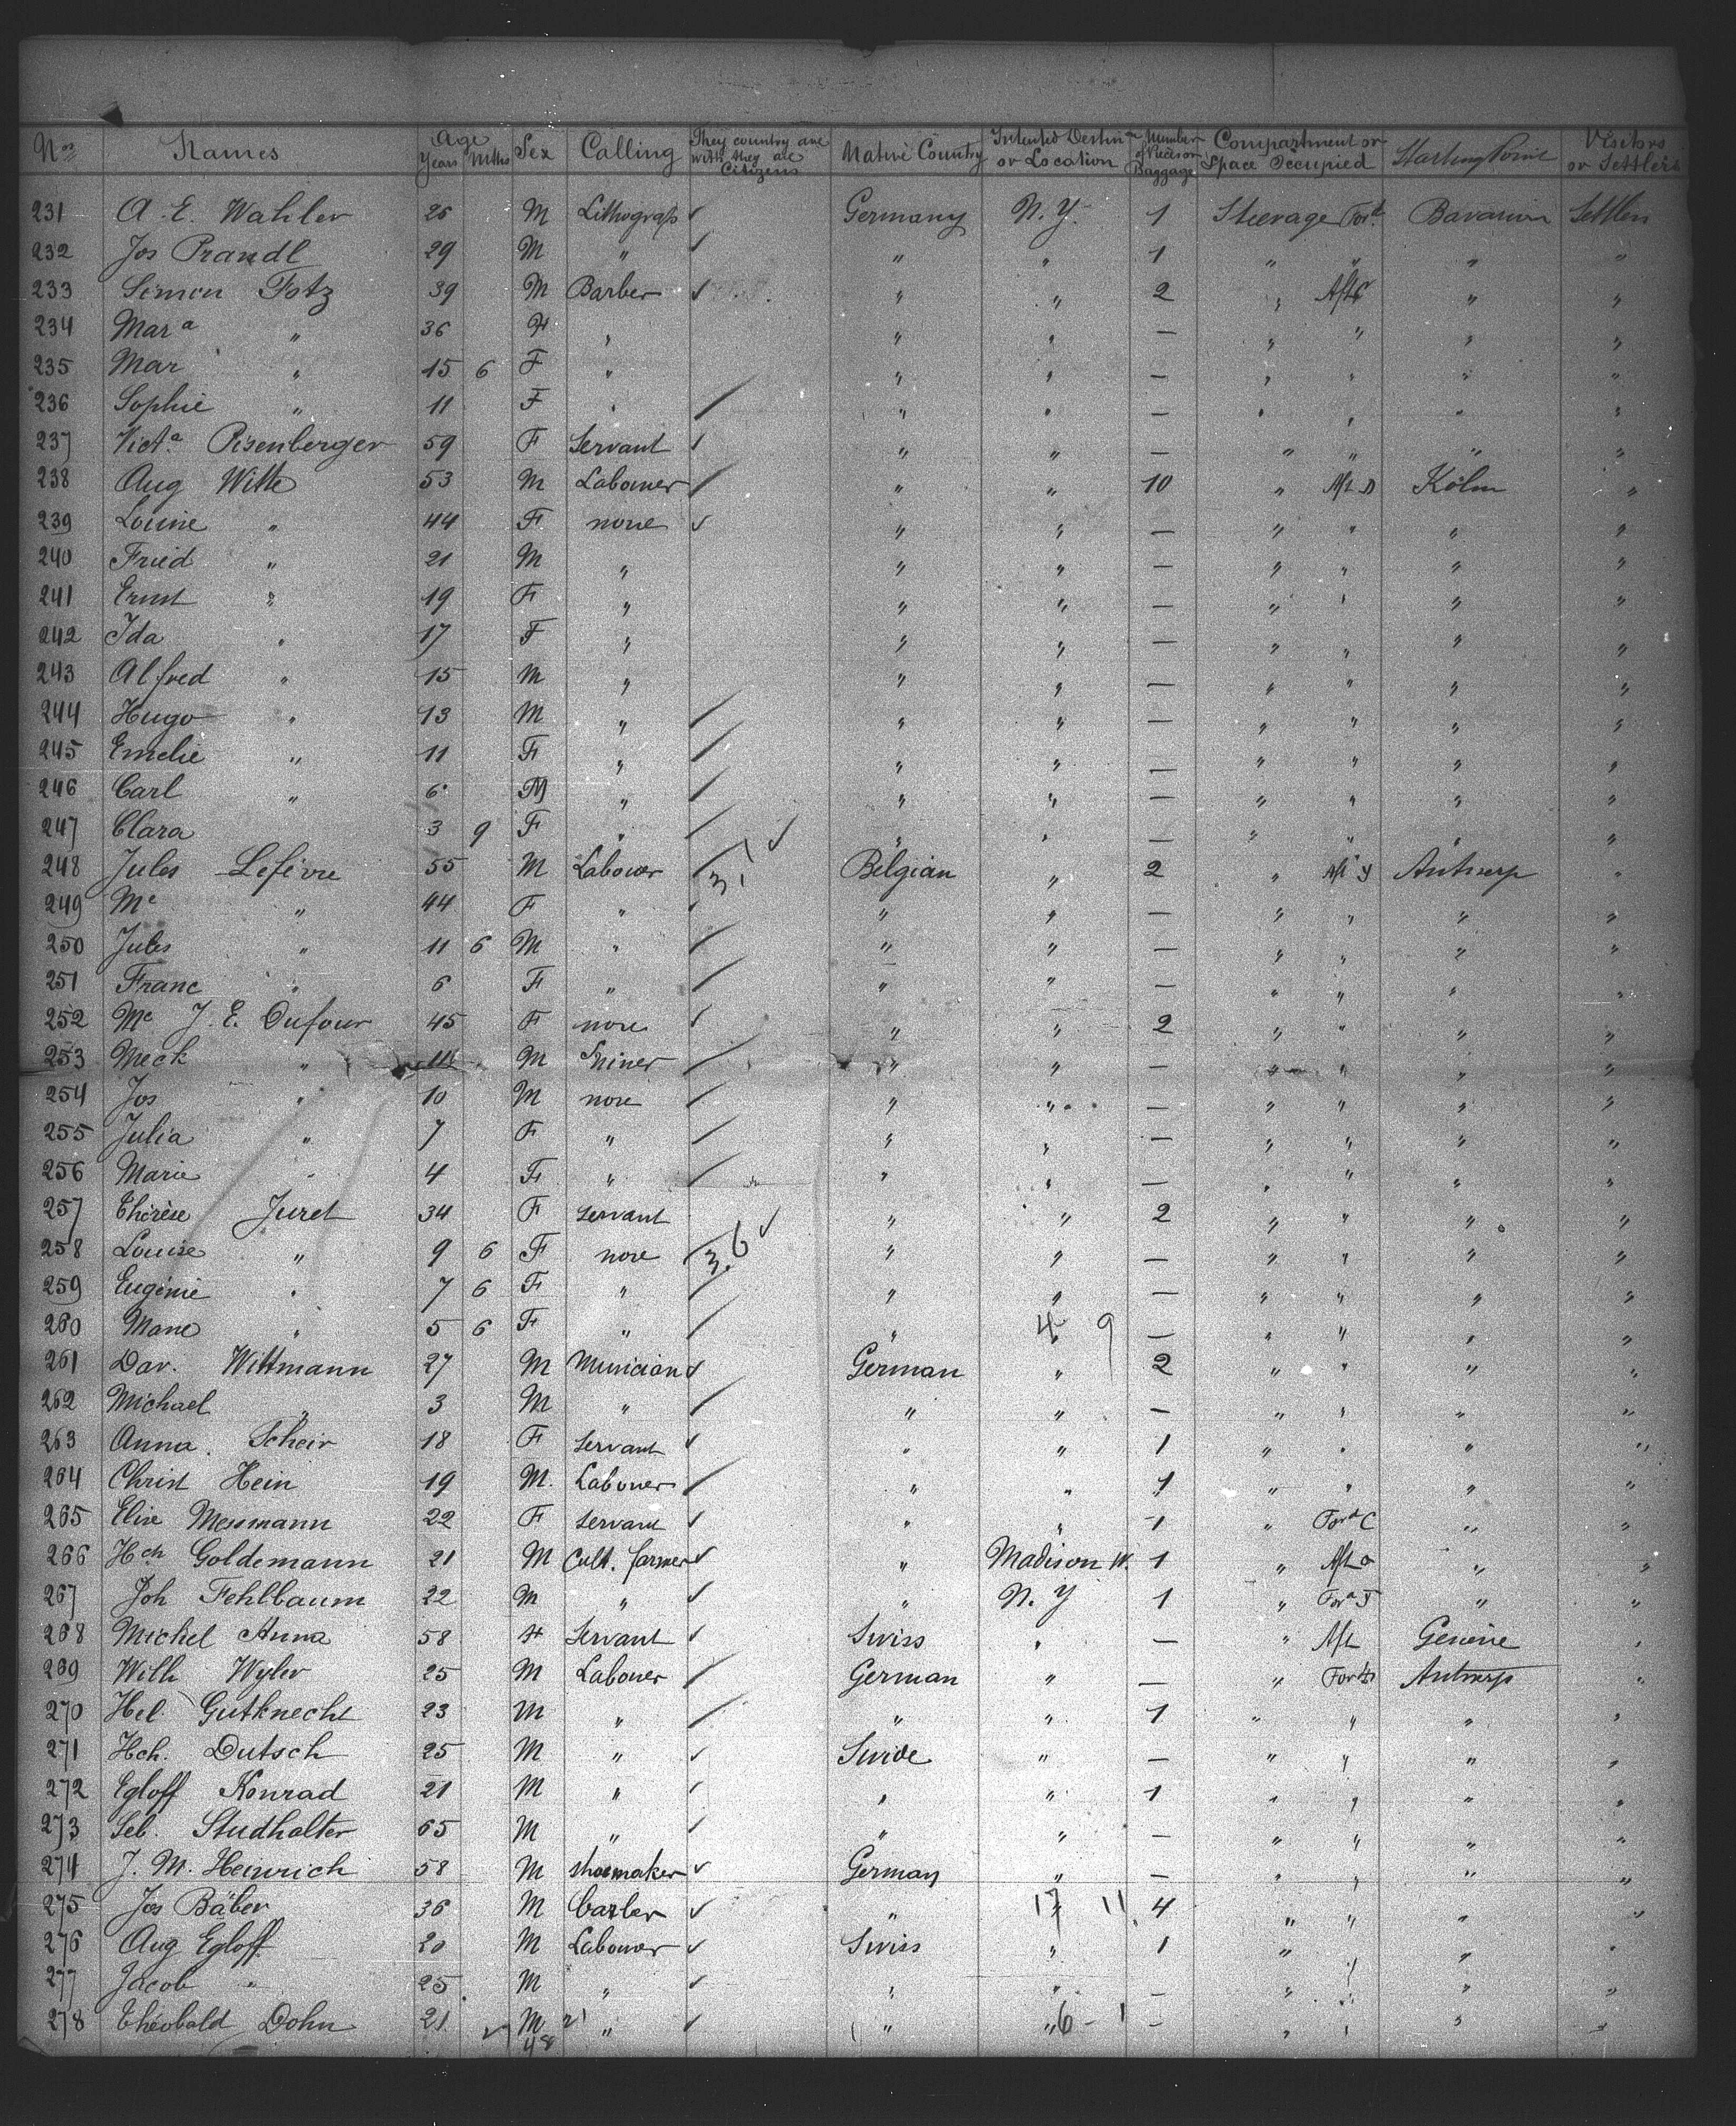 Nos Names Age Years Mths Sex Calling They country are with they are Citizens Native Country Intented Destin or Location Number of Pieces or Baggage Compartment or Space Occupied Starting Point Visitors or Settlers
231 A. E. Wahler 25 M Lithograph Germany N. Y. 1 Steerage For Bavarian Settlers
232 Jos Prandl 29 M " " " 1 " " " "
233 Simon Fotz 39 M Barber " " 2 " Aft " "
234 Mar a " 36 F " " " — " " " "
235 Mar " 15 6 F " " " — " " " "
236 Sophie " 11 F " " " — " " " "
237 Vict a Pisenberger 59 F Servant " " — " " " "
238 Aug Witte 53 M Labouer " " 10 " Aft D Köln "
239 Louise " 44 F none " " — " " " "
240 Fried " 21 M " " " — " " " "
241 Ernst " 19 F " " " — " " " "
242 Ida " 17 F " " " — " " " "
243 Alfred " 15 M " " " — " " " "
244 Hugo " 13 M " " " — " " " "
245 Emelie " 11 F " " " — " " " "
246 Carl " 6 M " " " — " " " "
247 Clara 3 9 F " " " — " " " "
248 Jules Lefèvre 55 M Labouer 31 Belgian " 2 " Aft Antwerp "
249 Me " 44 F " " " — " " " "
250 Jules " 11 6 M " " " — " " " "
251 Franc " 6 F " " " — " " " "
252 Me J. E. Dufour 45 F none " " 2 " " " "
253 Meck " 11 M miner " " — " " " "
254 Jos " 10 M none " " — " " " "
255 Julia " 7 F " " " — " " " "
256 Marie " 4 F " " " — " " " "
257 Thérèse Juret 34 F servant " " 2 " " " "
258 Louise " 9 6 F none 36 " " — " " " "
259 Eugénie " 7 6 F " " " — " " " "
260 Marie " 5 6 F " " 4 9 — " " " "
261 Dav. Wittmann 27 M Musician German " 2 " " " "
262 Michael " 3 M " " " — " " " "
263 Anna Scheir 18 F servant " " 1 " " " "
264 Christ Hein 19 M. Labouer " " 1 " " " "
265 Elise Messmann 22 F servant " " 1 " For C " "
266 Hch Goldemann 21 M Cult. farmer " Madison W. 1 " Aft " "
267 Joh Fehlbaum 22 M " " N. Y 1 " For " "
268 Michel Anna 58 F Servant Swiss " — " Aft Genève "
269 Wilh Wyler 25 M Labouer German " — " For Antwerp "
270 Hel. Gutknecht 23 M " " " 1 " " " "
271 Hch. Dutsch 25 M " " — " " " "
272 Egloff Konrad 21 M " " " 1 " " " "
273 Seb. Studhalter 65 M " " " — " " " "
274 J. M. Heinrich 58 M shoemaker German " — " " " "
275 Jos Bäber 36 M barber " 17 11 4 " " " "
276 Aug Egloff 20 M Labouer Swiss " 1 " " " "
277 Jacob " 25 M " " " — " " " "
278 Théobald Dohn 21 M " " " 6 - 1 — " " " "
48